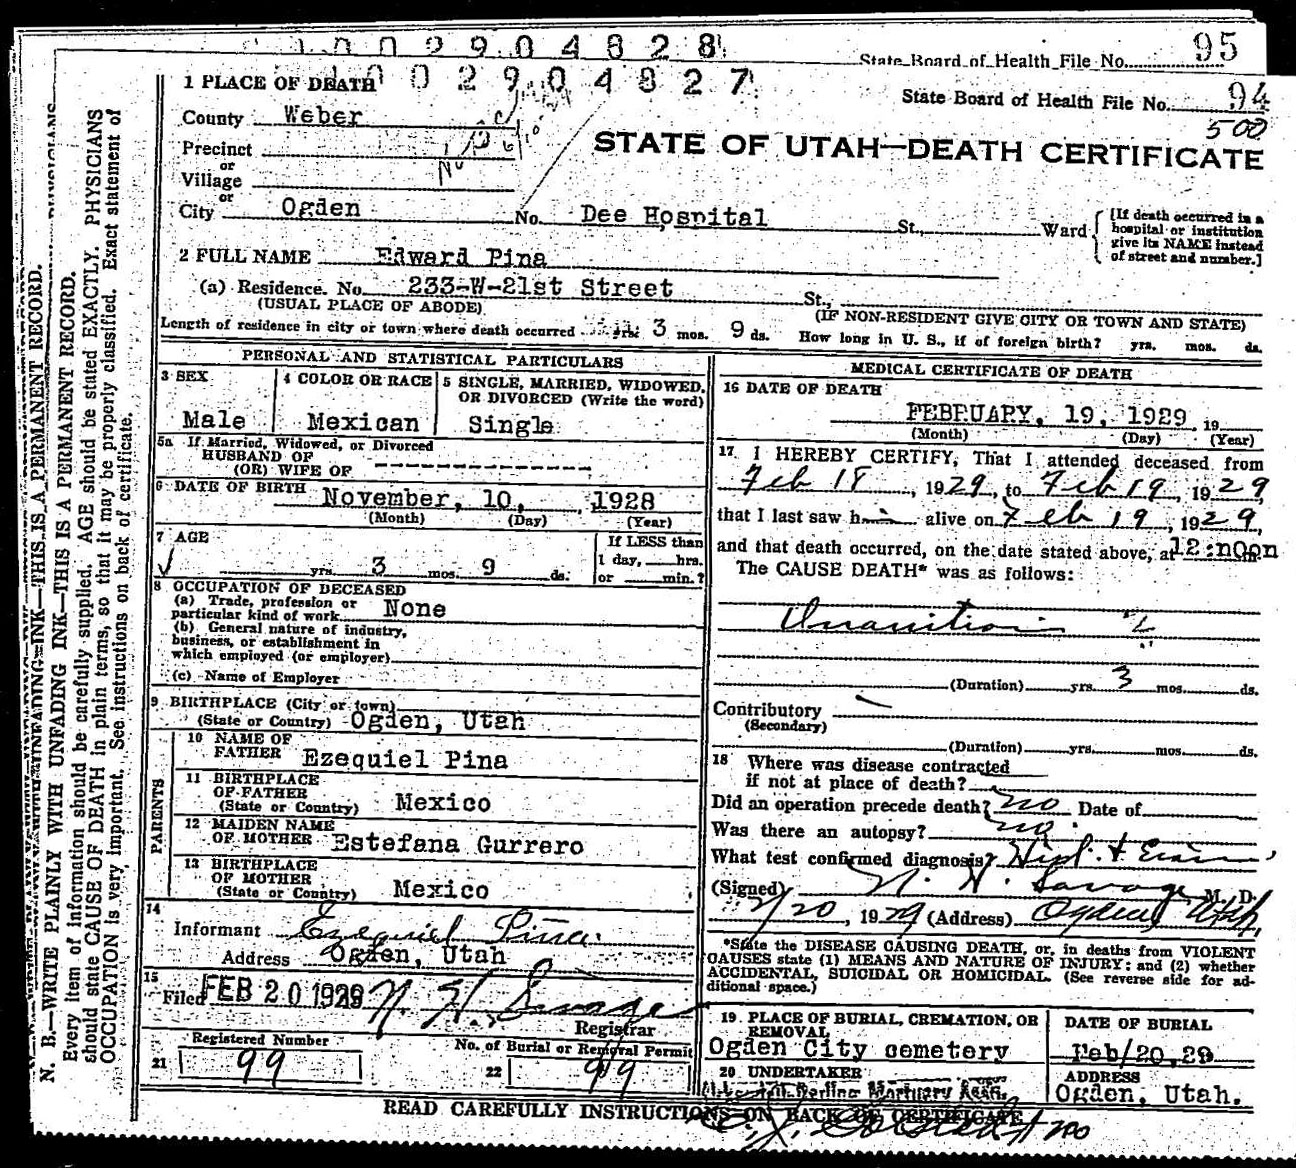 1 0 0 2 9 0 4 8 2 8
State Board of Health File No. 95
1 0 0 2 9 0 4 8 2 7
State Board of Health File No. 94
500
1 PLACE OF DEATH
County Weber
Precinct
or
Village
or
City Ogden No. Dee Hospital St., Ward
[If death occurred in a
hospital or institution
give its NAME instead
of street and number.]
STATE OF UTAH—DEATH CERTIFICATE
2 FULL NAME Edward Pina
(a) Residence. No. 233-W-21st Street St.,
(USUAL PLACE OF ABODE) (IF NON-RESIDENT GIVE CITY OR TOWN AND STATE)
Length of residence in city or town where death occurred yrs. 3 mos. 9 ds. How long in U. S., if of foreign birth? yrs. mos. ds.
PERSONAL AND STATISTICAL PARTICULARS
3 SEX
Male
4 COLOR OR RACE
Mexican
5 SINGLE, MARRIED, WIDOWED,
OR DIVORCED (Write the word)
Single
5a If Married, Widowed, or Divorced
HUSBAND OF
(OR) WIFE OF ---------------
6 DATE OF BIRTH November, 10, 1928
(Month) (Day) (Year)
7 AGE
yrs. 3 mos. 9 ds.
If LESS than
1 day, hrs.
or min.?
8 OCCUPATION OF DECEASED
(a) Trade, profession or
particular kind of work None
(b) General nature of industry,
business, or establishment in
which employed (or employer)
(c) Name of Employer
9 BIRTHPLACE (City or town)
(State or Country) Ogden, Utah
PARENTS
10 NAME OF
FATHER Ezequiel Pina
11 BIRTHPLACE
OF FATHER
(State or Country) Mexico
12 MAIDEN NAME
OF MOTHER Estefana Gurrero
13 BIRTHPLACE
OF MOTHER
(State or Country) Mexico
14
Informant Ezequiel Piña.
Address Ogden, Utah
15
Filed FEB 20 1929 N. H. Savage
Registrar
Registered Number
21 99
No. of Burial or Removal Permit
22 99
MEDICAL CERTIFICATE OF DEATH
16 DATE OF DEATH
FEBRUARY, 19, 1929 19
(Month) (Day) (Year)
17 I HEREBY CERTIFY, That I attended deceased from
Feb 18, 1929, to Feb 19, 1929
that I last saw him alive on Feb 19, 1929,
and that death occurred, on the date stated above, at 12:noon
The CAUSE DEATH* was as follows:
Inanition
(Duration) yrs. 3 mos. ds.
Contributory
(Secondary)
(Duration) yrs. mos. ds.
18 Where was disease contracted
if not at place of death?
Did an operation precede death? no Date of
Was there an autopsy? no.
What test confirmed diagnosis? Hist. + Exam
(Signed) N. H. Savage M. D.
2/20, 1929 (Address) Ogden Utah,
*State the DISEASE CAUSING DEATH, or, in deaths from VIOLENT
CAUSES state (1) MEANS AND NATURE OF INJURY: and (2) whether
ACCIDENTAL, SUICIDAL OR HOMICIDAL. (See reverse side for ad-
ditional space.)
19 PLACE OF BURIAL, CREMATION, OR
REMOVAL
Ogden City cemetery
DATE OF BURIAL
Feb/20,29
20 UNDERTAKER
Mortuary Assn.
ADDRESS
Ogden, Utah.
READ CAREFULLY INSTRUCTIONS ON BACK OF CERTIFICATE
N. B.—WRITE PLAINLY WITH UNFADING INK—THIS IS A PERMANENT RECORD.
Every item of information should be carefully supplied. AGE should be stated EXACTLY. PHYSICIANS
should state CAUSE OF DEATH in plain terms, so that it may be properly classified. Exact statement of
OCCUPATION is very important. See instructions on back of certificate.